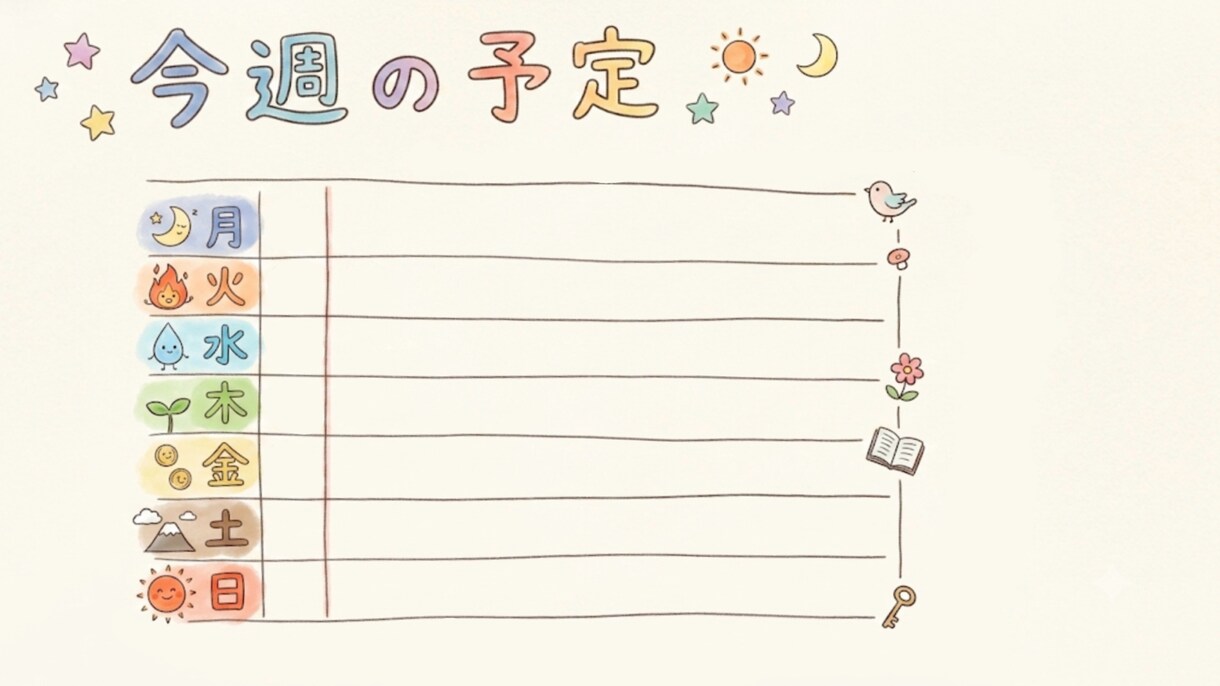 今週の予定
月
火
水
木
金
土
日